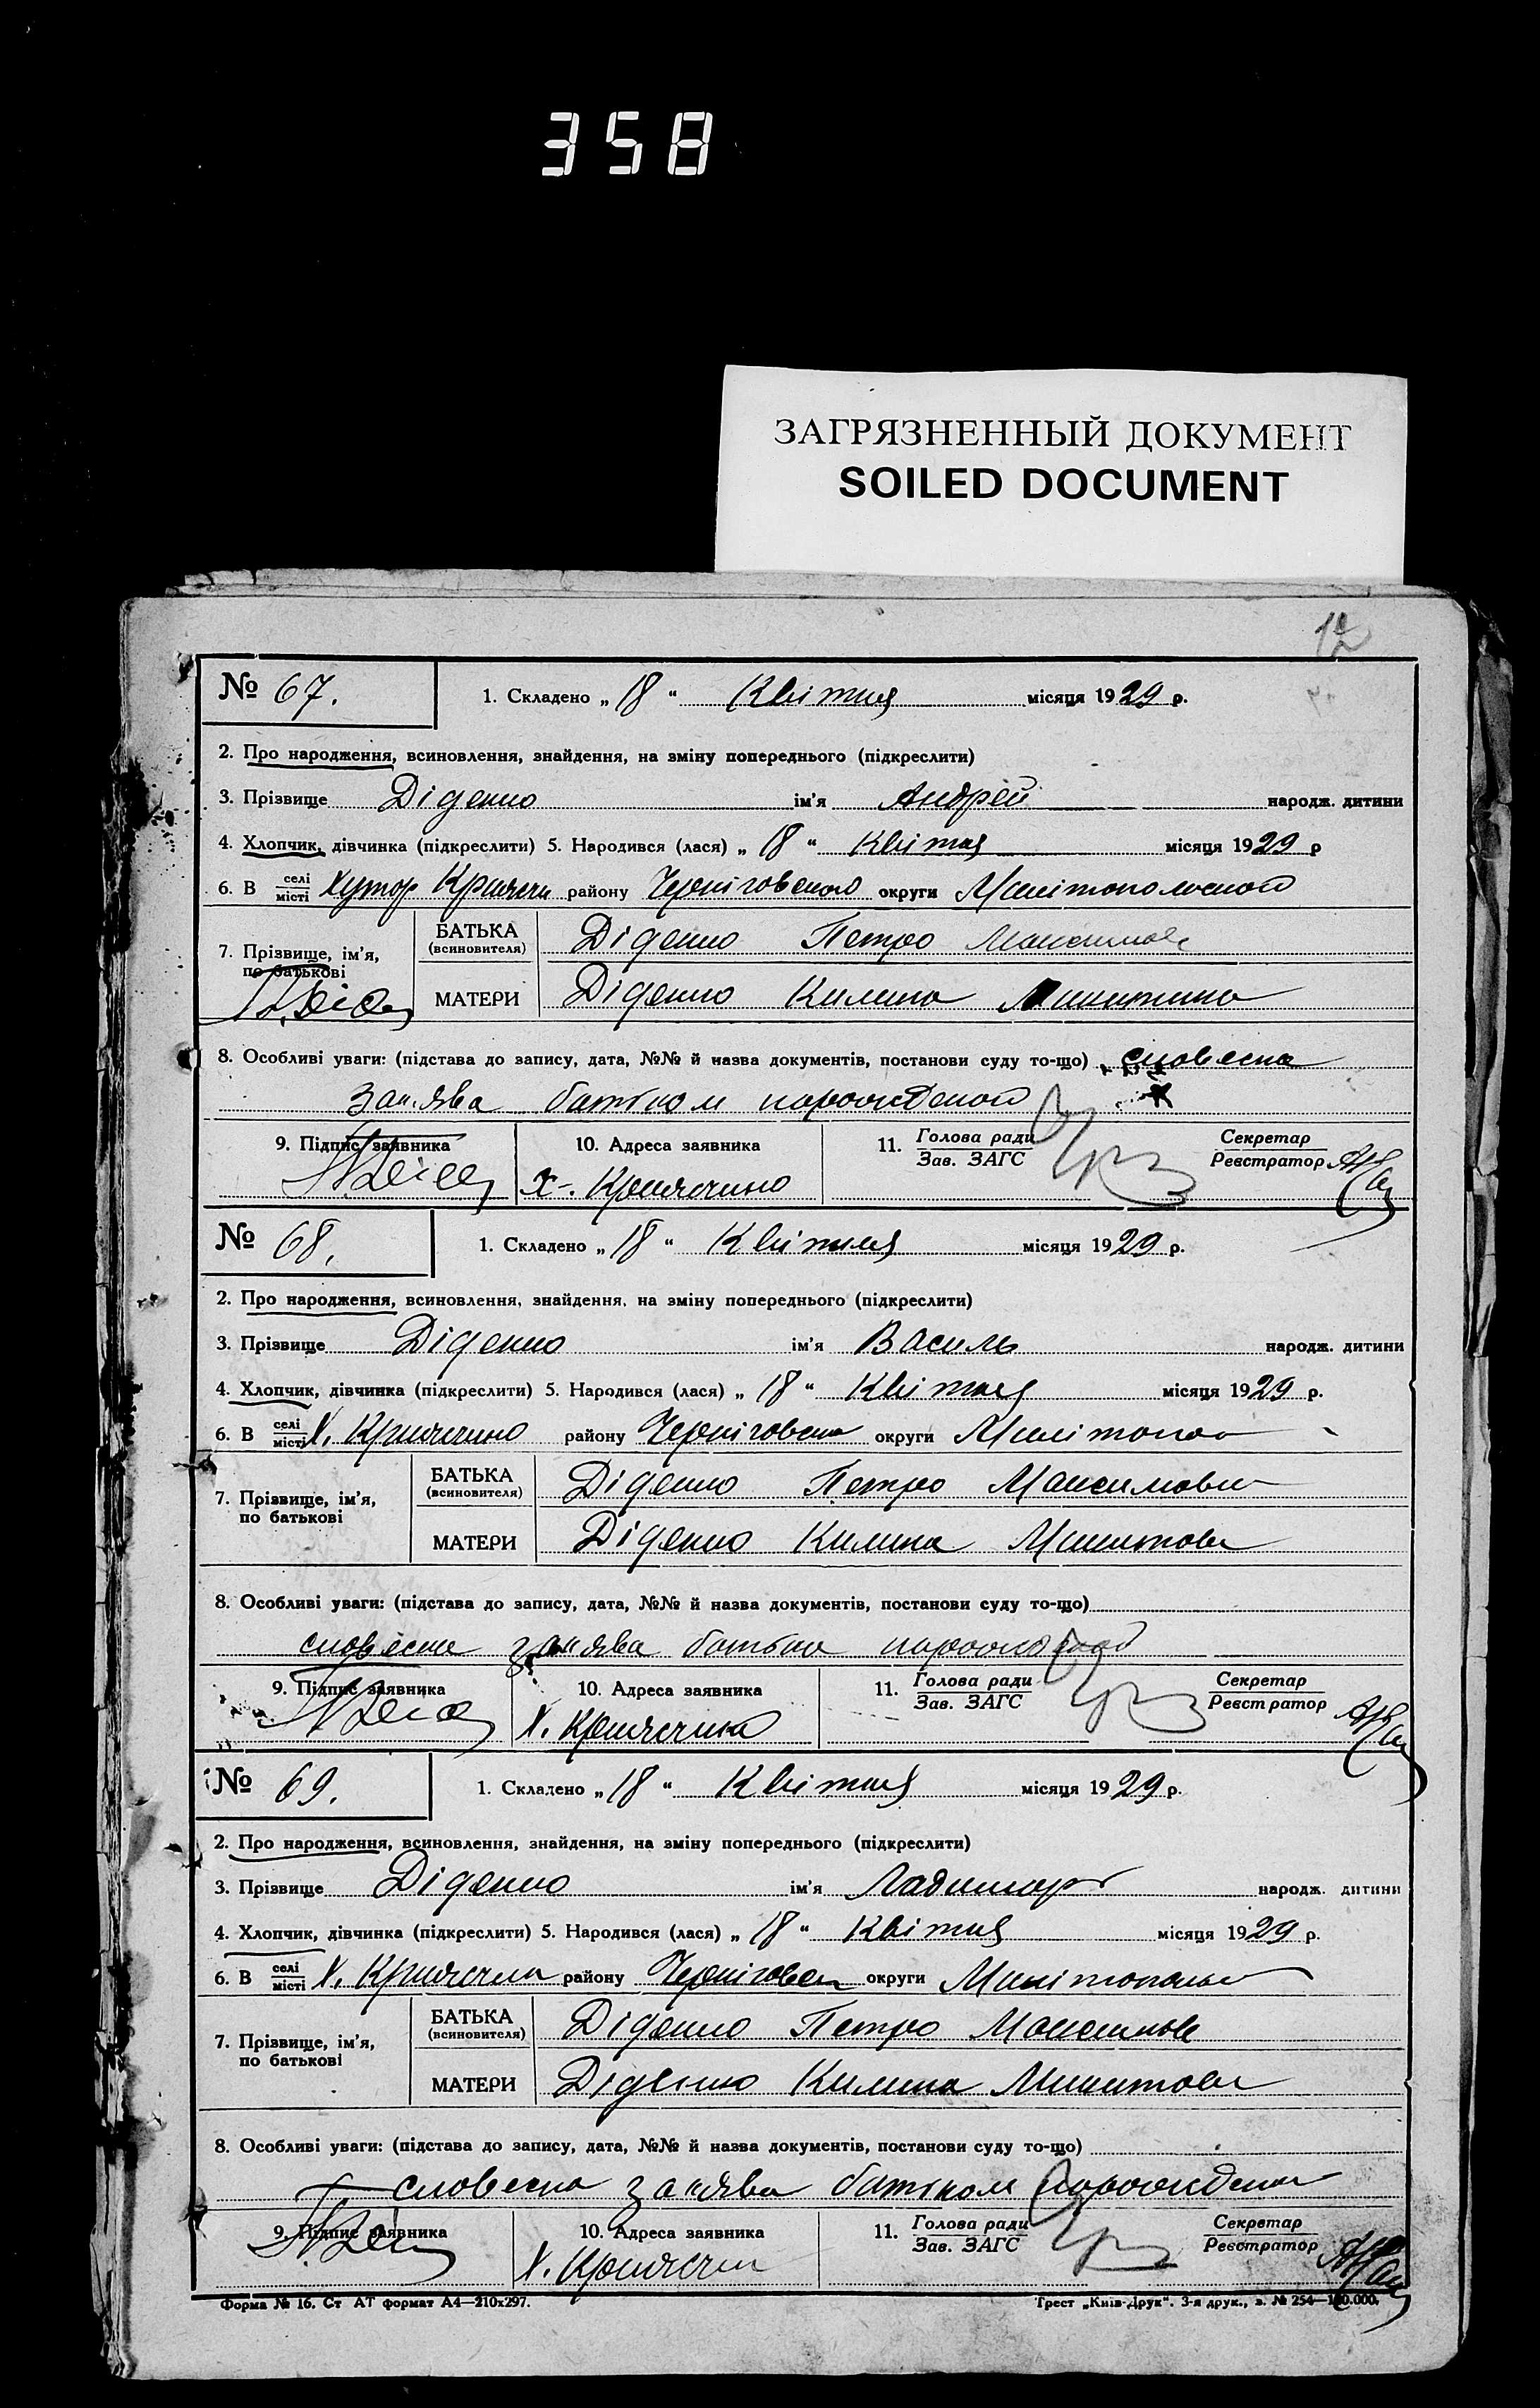 358
ЗАГРЯЗНЕННЫЙ ДОКУМЕНТ
SOILED DOCUMENT
12
№ 67. 1. Складено „ 18 “ Квітня місяця 1929 р.
2. Про народження, всиновлення, знайдення, на зміну попереднього (підкреслити)
3. Прізвище Діденко ім'я Андрей народж. дитини
4. Хлопчик, дівчинка (підкреслити) 5. Народився (лася) „ 18 “ Квітня місяця 1929 р
6. В селі/місті хутор району Черніговського округи
7. Прізвище, ім'я, по батькові
БАТЬКА (всиновителя) Діденко Петро
МАТЕРИ Діденко Килина
8. Особливі уваги: (підстава до запису, дата, №№ й назва документів, постанови суду то-що) словесна
заява батьком
9. Підпис заявника 10. Адреса заявника 11. Голова ради/Зав. ЗАГС Секретар/Реєстратор
№ 68. 1. Складено „ 18 “ Квітня місяця 1929 р.
2. Про народження, всиновлення, знайдення, на зміну попереднього (підкреслити)
3. Прізвище Діденко ім'я Василь народж. дитини
4. Хлопчик, дівчинка (підкреслити) 5. Народився (лася) „ 18 “ Квітня місяця 1929 р.
6. В селі/місті Х. району округи
7. Прізвище, ім'я, по батькові
БАТЬКА (всиновителя) Діденко Петро
МАТЕРИ Діденко Килина
8. Особливі уваги: (підстава до запису, дата, №№ й назва документів, постанови суду то-що)
заява батька
9. Підпис заявника 10. Адреса заявника 11. Голова ради/Зав. ЗАГС Секретар/Реєстратор
Х.
№ 69. 1. Складено „ 18 “ Квітня місяця 1929 р.
2. Про народження, всиновлення, знайдення, на зміну попереднього (підкреслити)
3. Прізвище Діденко ім'я народж. дитини
4. Хлопчик, дівчинка (підкреслити) 5. Народився (лася) „ 18 “ Квітня місяця 1929 р.
6. В селі/місті Х. району округи
7. Прізвище, ім'я, по батькові
БАТЬКА (всиновителя) Діденко Петро
МАТЕРИ Діденко Килина
8. Особливі уваги: (підстава до запису, дата, №№ й назва документів, постанови суду то-що)
словесна заява батьком
9. Підпис заявника 10. Адреса заявника 11. Голова ради/Зав. ЗАГС Секретар/Реєстратор
Х.
Форма № 16. Ст АТ формат А4—210х297. Трест „Київ-Друк“. 3-я друк., з. № 254